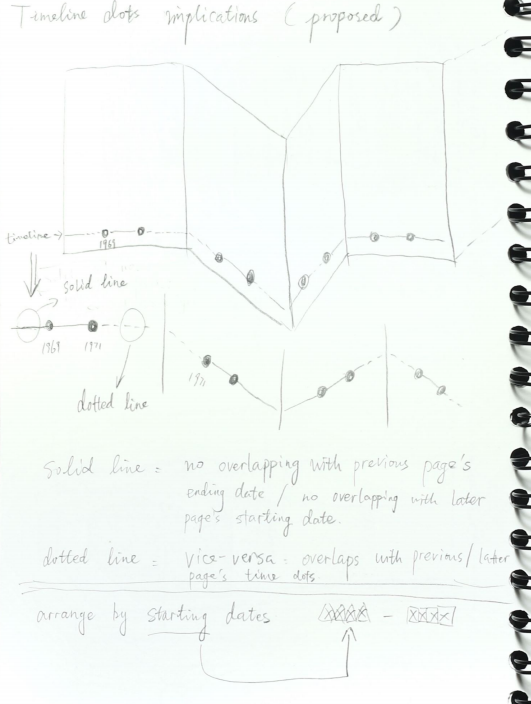 Timeline dots implications (proposed)
timeline →
1969
solid line
1969 1971
1971
dotted line
Solid line = no overlapping with previous page's
ending date / no overlapping with later
page's starting date.
dotted line = vice-versa. overlaps with previous/latter
page's time dots
arrange by starting dates XXXX - XXXX